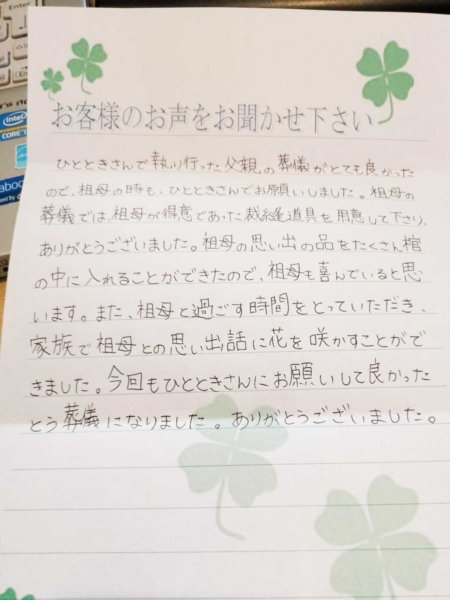 お客様のお声をお聞かせ下さい
ひとときさんで執り行った父親の葬儀がとても良かった
ので、祖母の時も、ひとときさんでお願いしました。祖母の
葬儀では、祖母が得意であった裁縫道具を用意して下さり、
ありがとうございました。祖母の思い出の品をたくさん棺
の中に入れることができたので、祖母も喜んでいると思
います。また、祖母と過ごす時間をとっていただき、
家族で祖母との思い出話に花を咲かすことがで
きました。今回もひとときさんにお願いして良かった
とう葬儀になりました。ありがとうございました。
intel